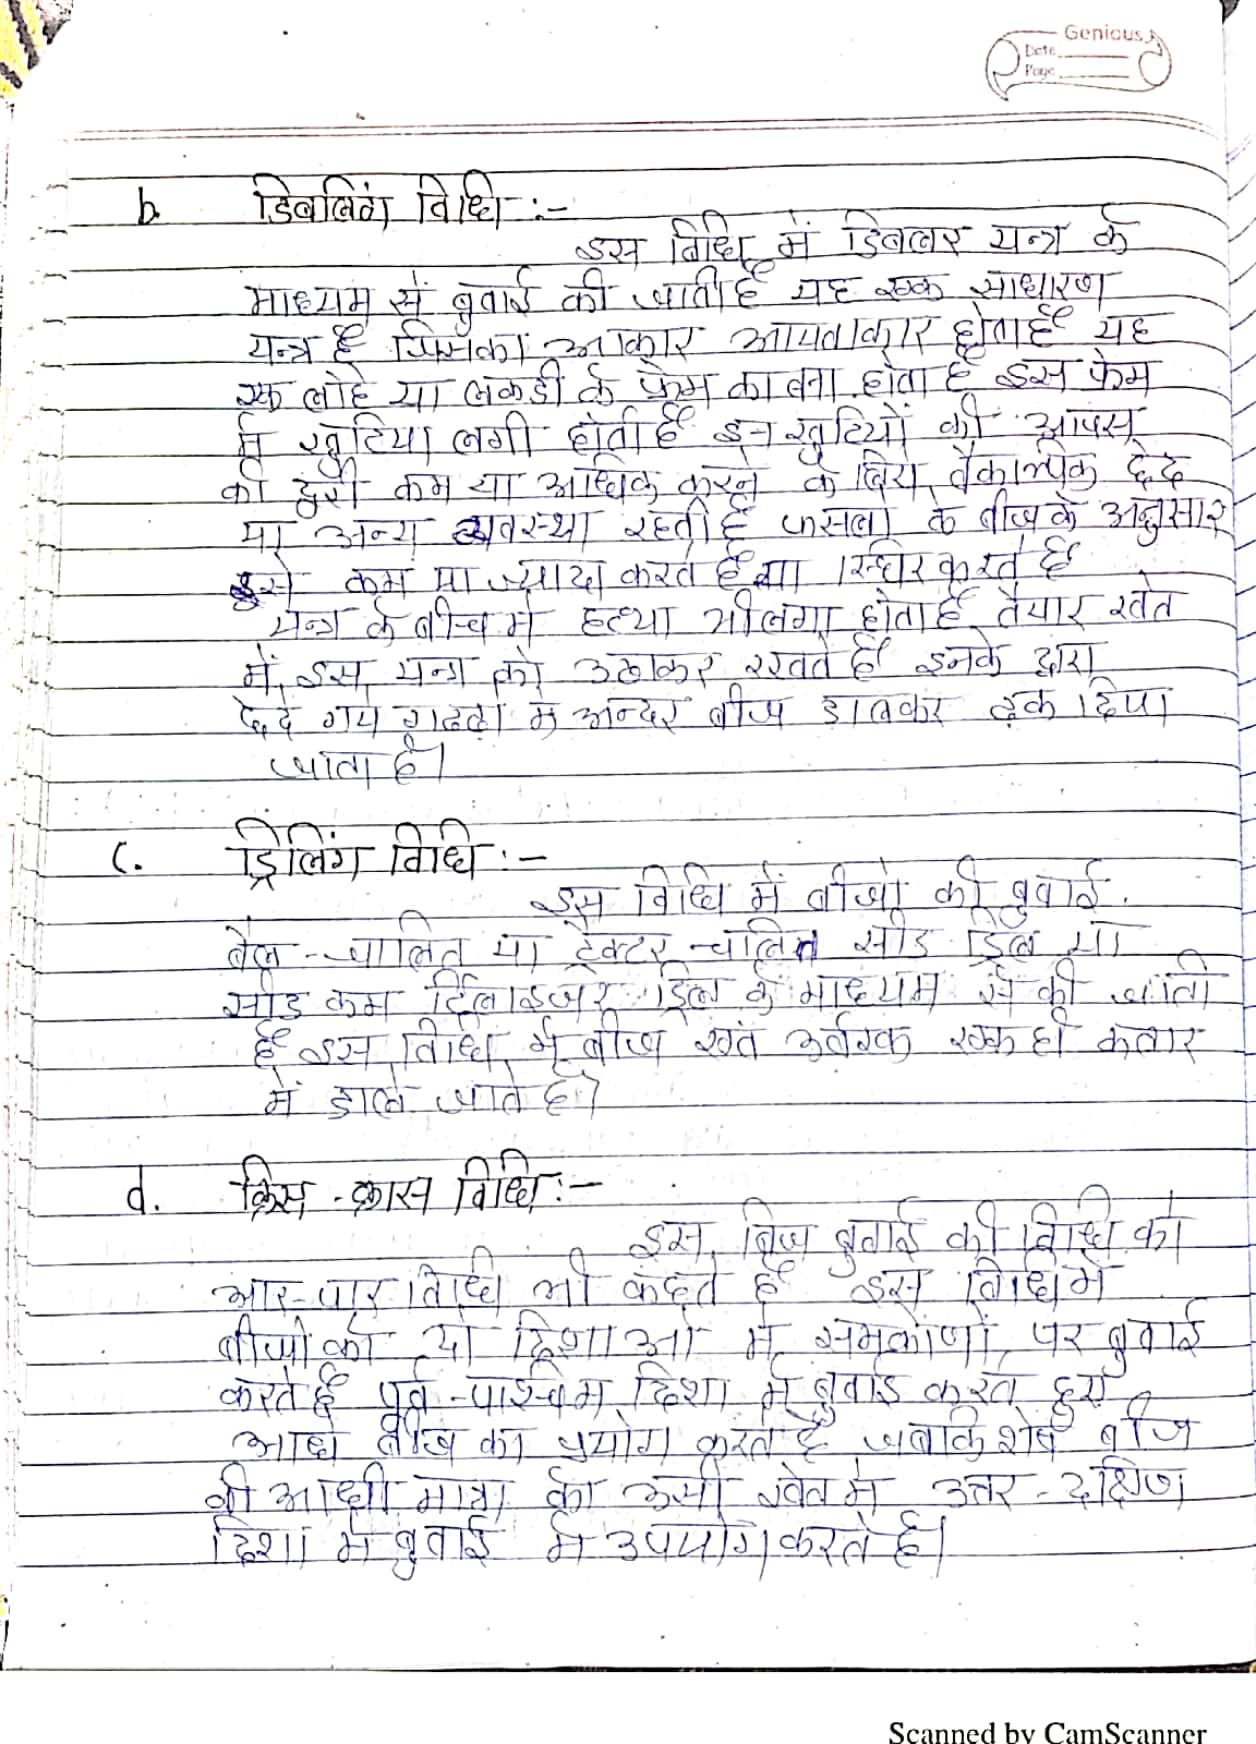 Genious
Date
Page
b. डिबलिंग विधि :-
इस विधि में डिबलर यन्त्र के
माध्यम से बुवाई की जाती है यह एक साधारण
यन्त्र है जिसका आकार आयताकार होता है यह
एक लोहे या लकडी के फ्रेम का बना होता है इस फ्रेम
में खुटिया लगी होती है इन खुटियों की आपस
की दुरी कम या अधिक करने के लिये वैकाल्पिक छेद
या अन्य व्यवस्था रहती है फसलो के बीज के अनुसार
इसे कम या ज्यादा करते है या स्थिर करते है
यन्त्र के बीच में हत्था भी लगा होता है तैयार खेत
में इस यन्त्र को उठाकर रखते है इनके द्वारा
छेद गये गढढो म अन्दर बीज डालकर ढ़क दिया
जाता है।
c. ड्रिलिंग विधि :-
इस विधि में बीजो की बुवाई
बैल-चालित या ट्रेक्टर-चालित सीड ड्रिल या
सीड कम र्टिलाइजर ड्रिल के माध्यम से की जाती
है इस विधि में बीज एवं उर्वरक एक ही कतार
में डाले जाते है।
d. क्रिस-क्रास विधि :-
इस बिज बुवाई की विधि को
आर-पार विधि भी कहते है इस विधि में
बीजो को दो दिशाओ में समकोणों पर बुवाई
करते है पूर्व-पश्चिम दिशा में बुवाई करते हुए
आधे बीज का प्रयोग करते है जबकि शेष बीज
की आधी मात्रा का उसी खेत में उत्तर-दक्षिण
दिशा में बुवाई में उपयोग करते है।
Scanned by CamScanner